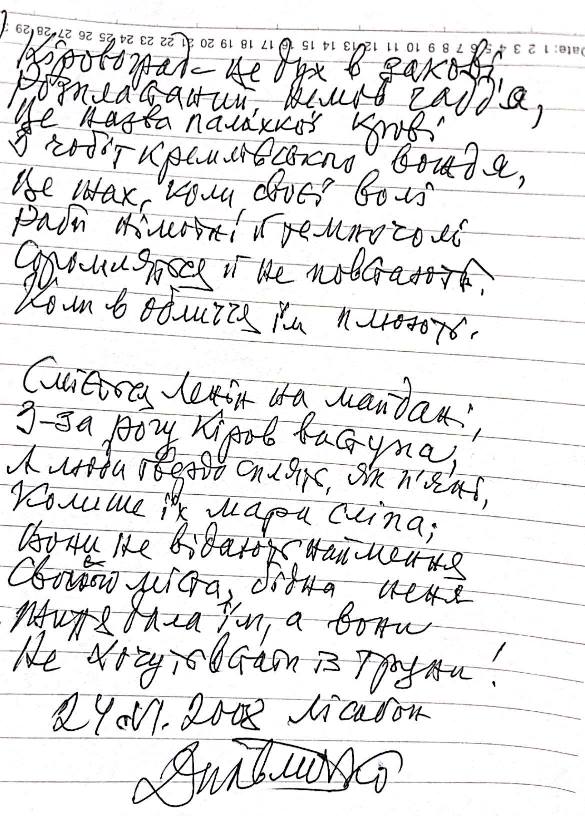 Date: 1 2 3 4 5 6 7 8 9 10 11 12 13 14 15 16 17 18 19 20 21 22 23 24 25 26 27 28 29
Кіровоград – це дух в закові,
Розпластаний, немов гадд'я,
Це назва палахкої крові
З чобіт кремлівського вождя,
Це жах, коли своєї волі
Раби німотні й темночолі
Соромляться й не повстають,
Коли в обличчя їм плюють.
Сміється Ленін на майдані,
З-за рогу Кіров виступа,
А люди твердо сплять, як п'яні,
Колише їх мара сліпа;
Вони не відають наймення
Свойого міста, бідна неня
Життя дала їм, а вони
Не хочуть встати із труни!
24.VI.2008 Лісабон
Дм Павличко